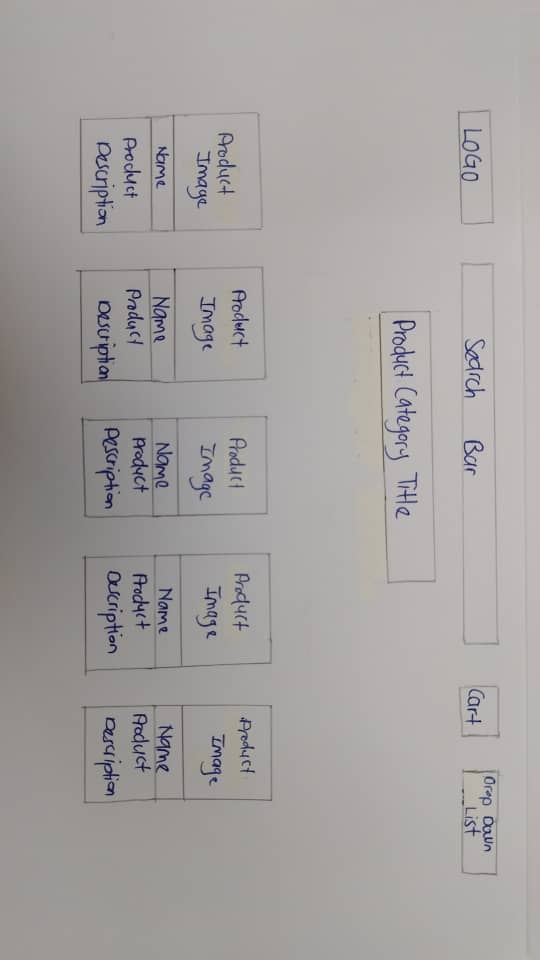 LOGO
Search Bar
Cart
Drop Down
List
Product Category Title
Product
Image
Name
Product
Description
Product
Image
Name
Product
Description
Product
Image
Name
Product
Description
Product
Image
Name
Product
Description
Product
Image
Name
Product
Description